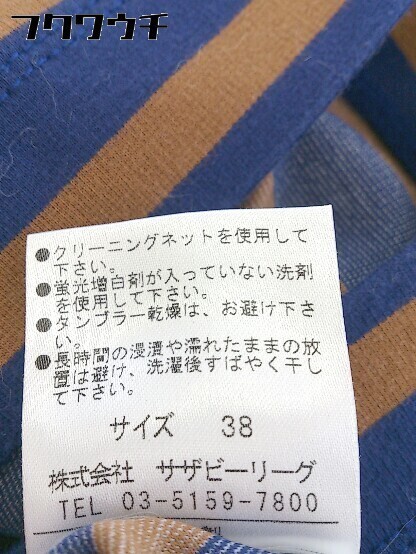 フクワウチ
●クリーニングネットを使用して
下さい。
●蛍光増白剤が入っていない洗剤
を使用して下さい。
●タンブラー乾燥は、お避け下さ
い。
●長時間の浸漬や濡れたままの放
置は避け、洗濯後すばやく干し
て下さい。
サイズ 38
株式会社 サザビーリーグ
TEL 03-5159-7800